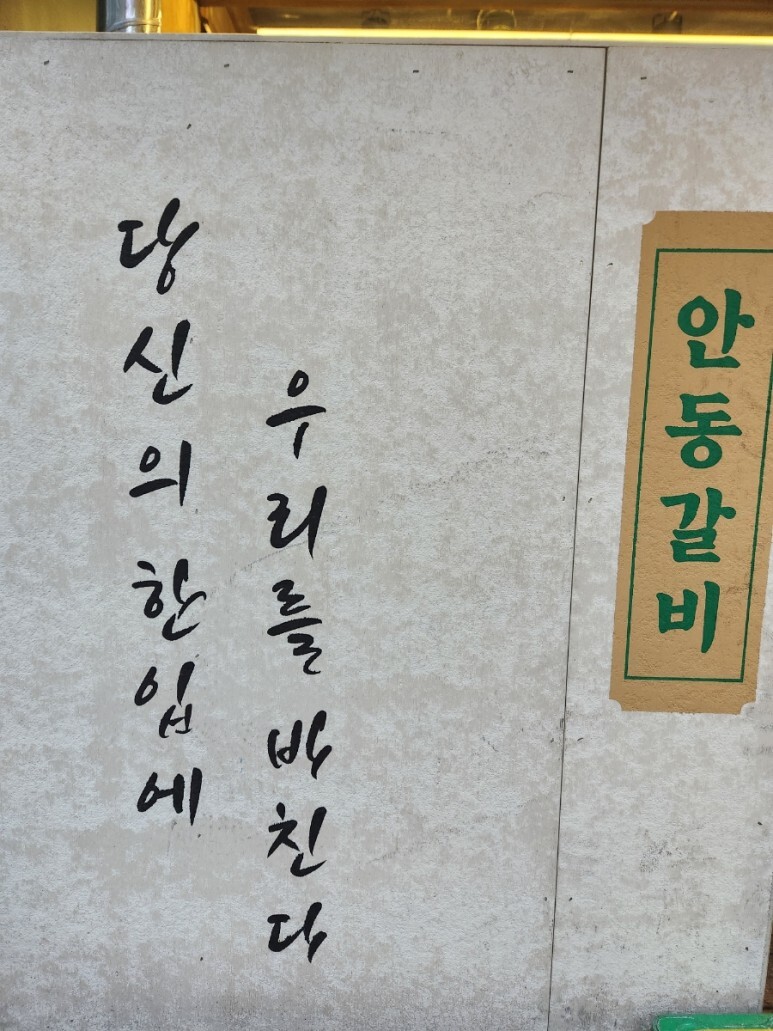 당신의 한입에
우리를 바친다
안동갈비